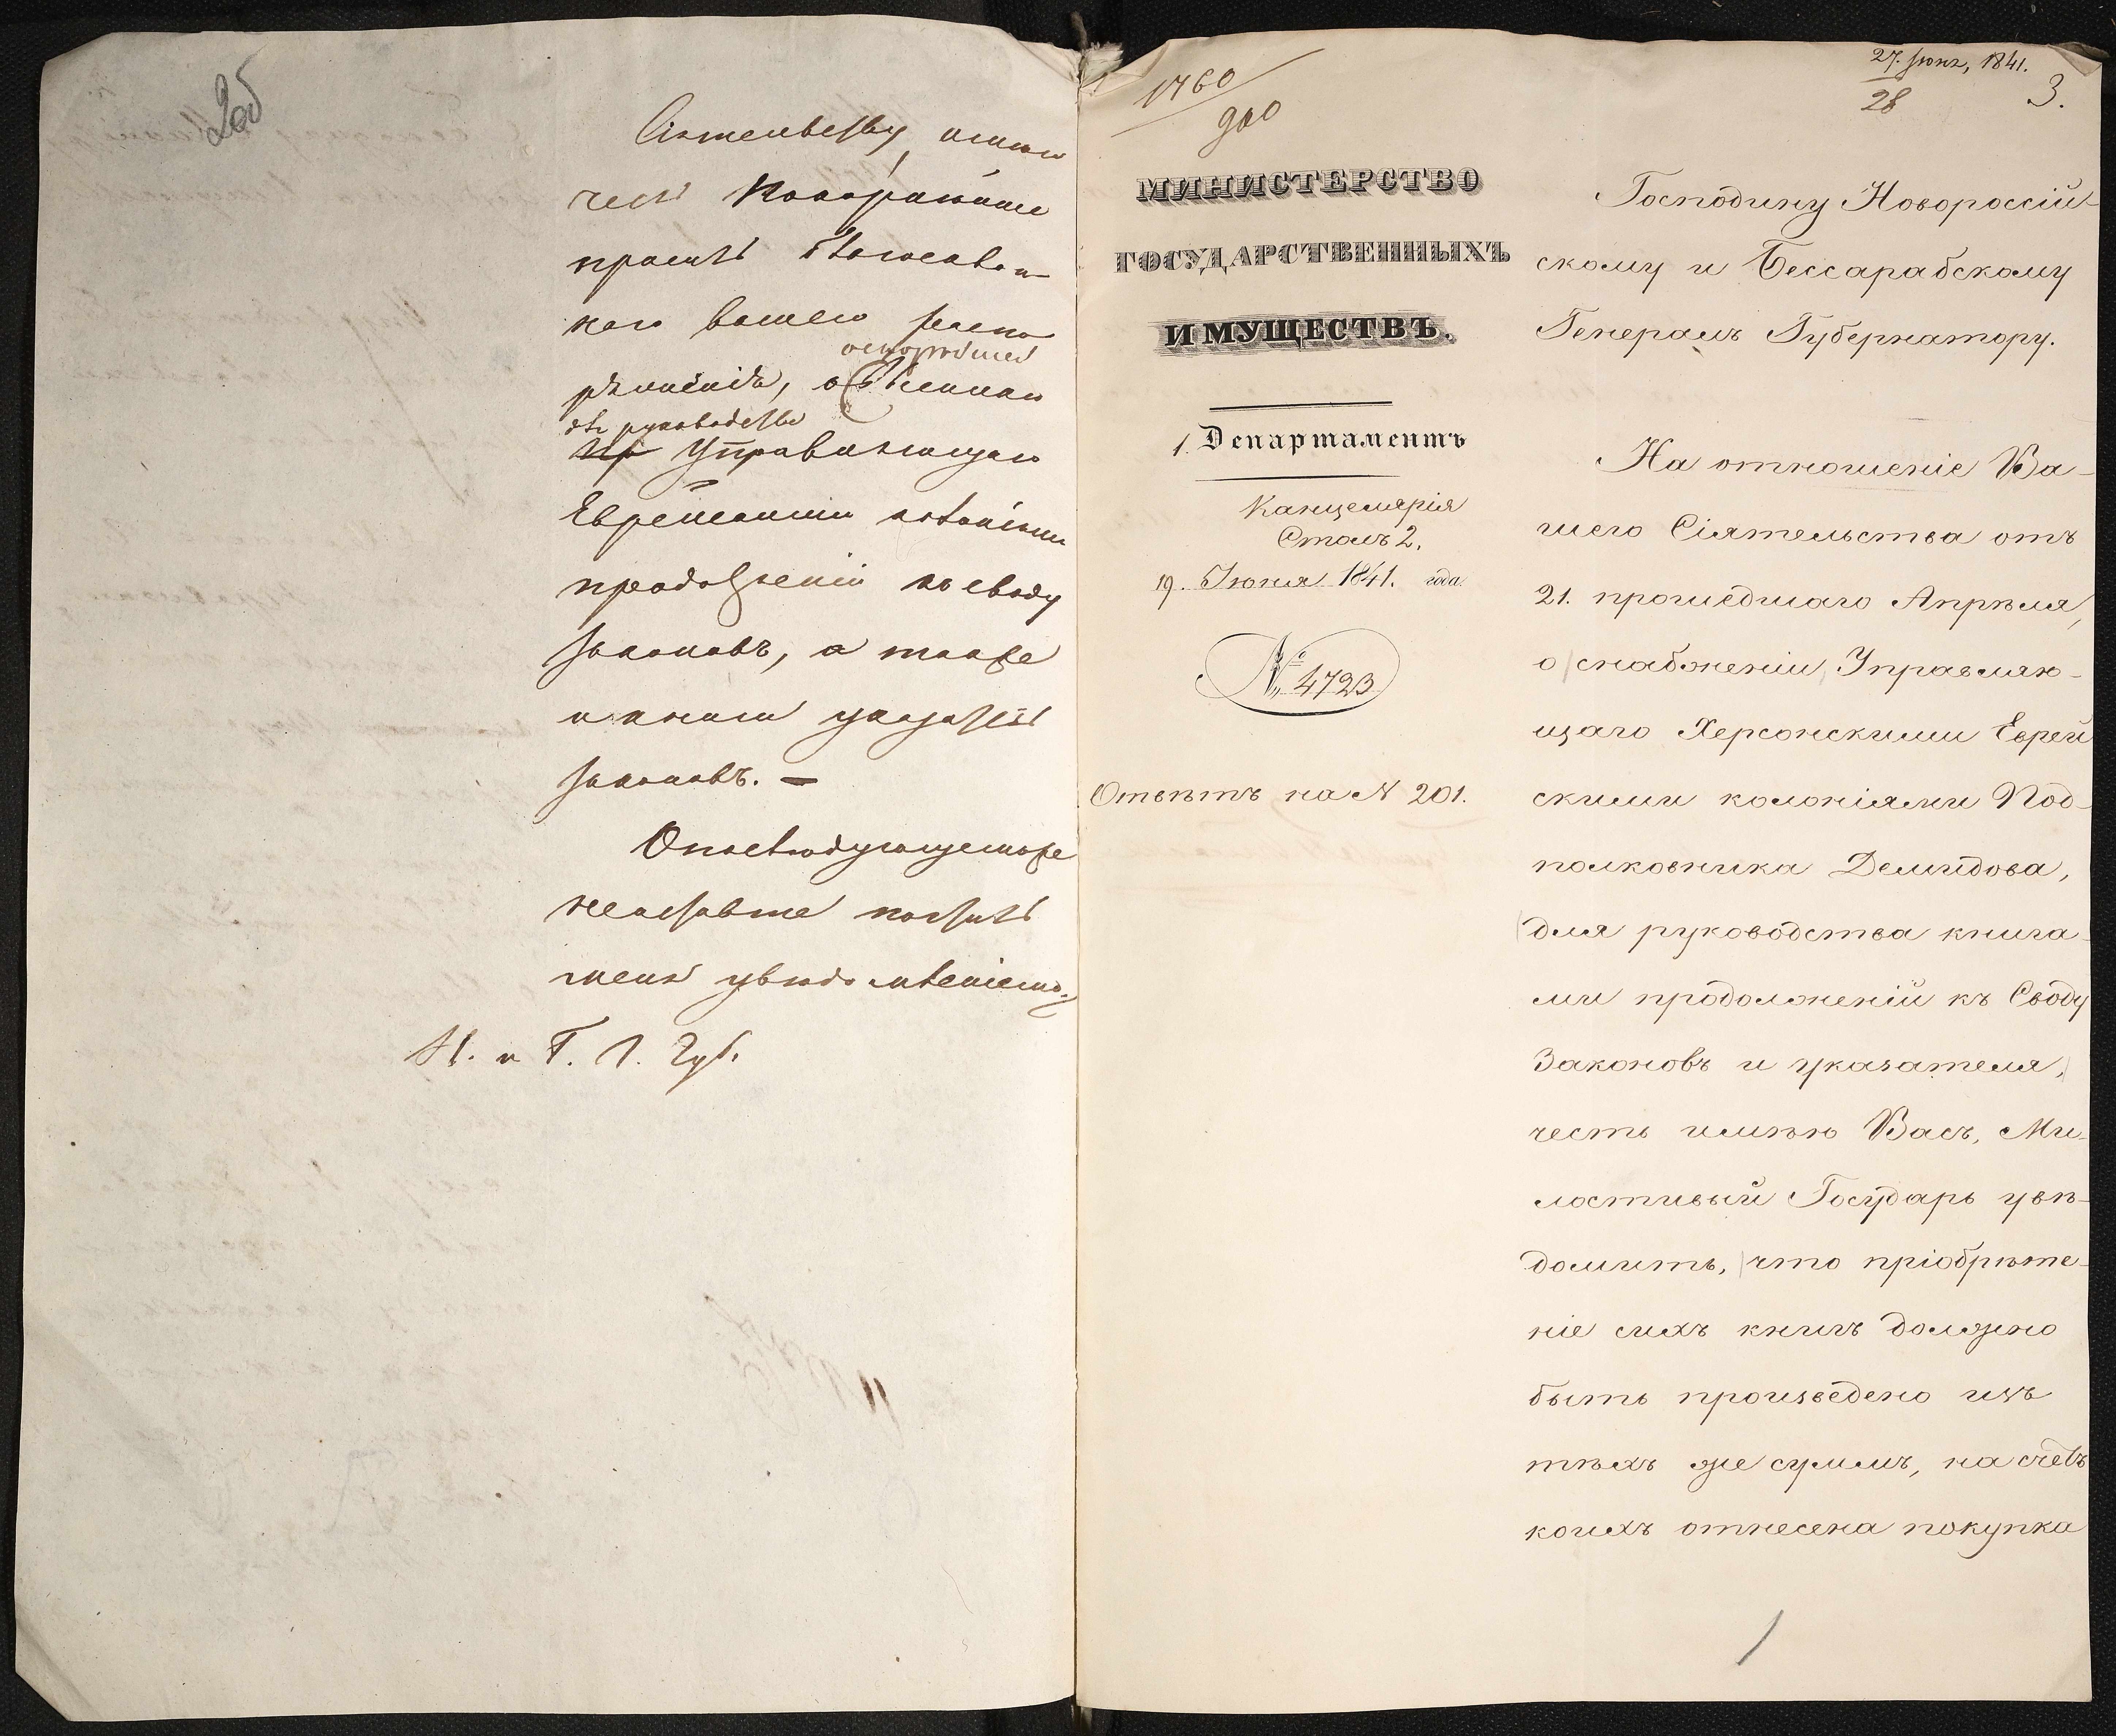 2об
Сіятельству, имѣю
честь покорнѣйше
просить
кого вашего распо
ряженія, о
для руководства
Управляющаго
Еврейскими колоніями
продолженій къ своду
законовъ, а также
и книги указателя
законовъ. —
О послѣдующемъ же
не оставте почтить
меня увѣдомленіемъ.
Н. и Б. Г. Губ.
1760
900
27. Іюня, 1841.
28
3.
МИНИСТЕРСТВО
ГОСУДАРСТВЕННЫХЪ
ИМУЩЕСТВЪ.
1. Департаментъ
Канцелярія
Столъ 2.
19. Іюня 1841. года.
№ 4723
Отвѣтъ на N 201.
Господину Новороссій-
скому и Бессарабскому
Генералъ Губернатору.
На отношеніе Ва-
шего Сіятельства отъ
21. прошедшаго Апрѣля,
о снабженіи Управляю-
щаго Херсонскими Еврей
скими колоніями Под-
полковника Демидова,
для руководства книга-
ми продолженій къ Своду
Законовъ и указателя,
честь имѣю Васъ, Ми-
лостивый Государь увѣ-
домить, что пріобрѣте-
ніе сихъ книгъ должно
быть произведено изъ
тѣхъ же суммъ, на счетъ
коихъ отнесена покупка